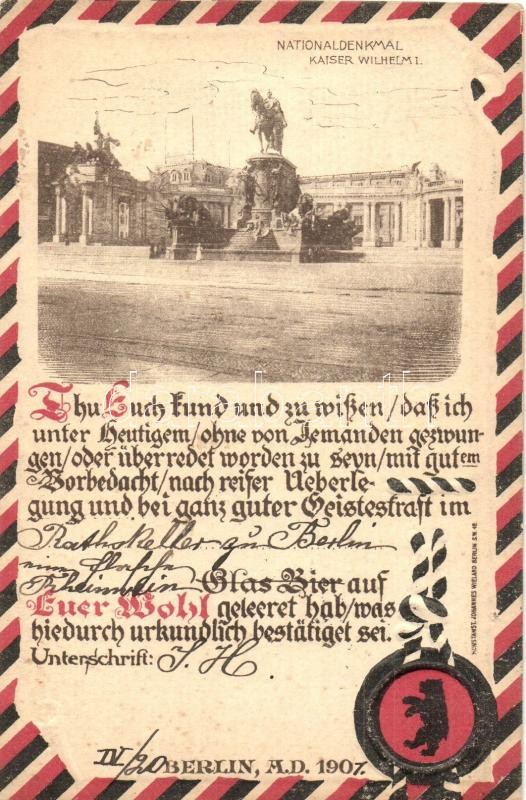 NATIONALDENKMAL
KAISER WILHELM I.
darabanth
Thu Euch kund und zu wißen/daß ich
unter Heutigem/ohne von Jemanden gezwun-
gen/oder überredet worden zu seyn/mit gutem
Vorbedacht/nach reifer Ueberle-
gung und bei ganz guter Geisteskraft im
Rathskeller zu Berlin
eine Flasche
Rheinwein Glas Bier auf
Euer Wohl geleeret hab/was
hiedurch urkundlich bestätiget sei.
Unterschrift: J. H
IV/20 BERLIN, A.D. 1907.
KUNSTANST. JOHANNES WIELAND BERLIN S.W. 48